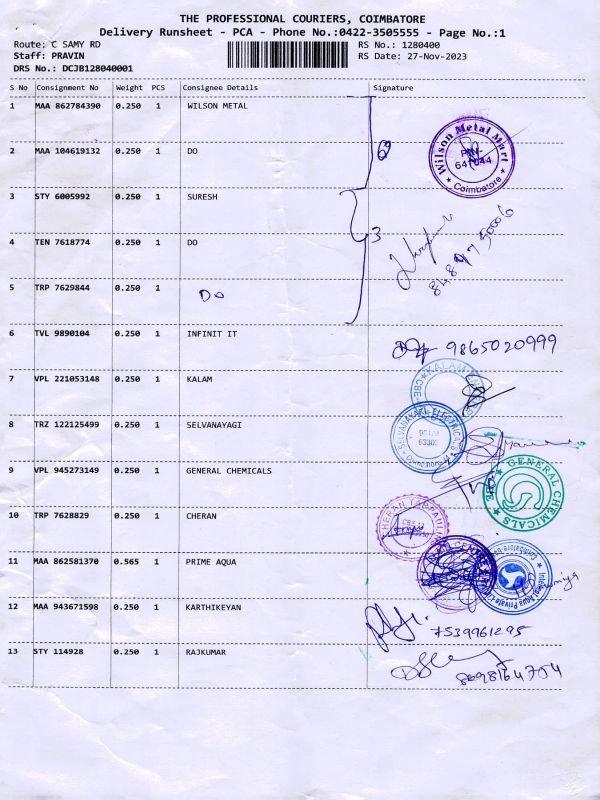 THE PROFESSIONAL COURIERS, COIMBATORE
Delivery Runsheet - PCA - Phone No.:0422-3505555 - Page No.:1
Route: C SAMY RD RS No.: 1280400
Staff: PRAVIN RS Date: 27-Nov-2023
DRS No.: DCJB128040001
S No Consignment No Weight PCS Consignee Details Signature
1 MAA 862784390 0.250 1 WILSON METAL
Wilson Metal Mart
641044
Coimbatore
2 MAA 104619132 0.250 1 DO
3 STY 6005992 0.250 1 SURESH
3
4 TEN 7618774 0.250 1 DO
5 TRP 7629844 0.250 1 DO
6 TVL 9890104 0.250 1 INFINIT IT
9865020999
7 VPL 221053148 0.250 1 KALAM
KALAM
8 TRZ 122125499 0.250 1 SELVANAYAGI
9 VPL 945273149 0.250 1 GENERAL CHEMICALS
GENERAL CHEMICALS
10 TRP 7628829 0.250 1 CHERAN
11 MAA 862581370 0.565 1 PRIME AQUA
12 MAA 943671598 0.250 1 KARTHIKEYAN
7539961295
13 STY 114928 0.250 1 RAJKUMAR